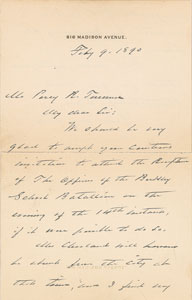 816 MADISON AVENUE.
Feby 9. 1890
My dear Sir:
We should be very
glad to accept your courteous
invitation to attend the reception
of The Officers of the Berkeley
School Battalion on the
evening of the 14th instant,
if it were possible to do so.
Mr Cleveland will however
be absent from the City at
that time, and I find my